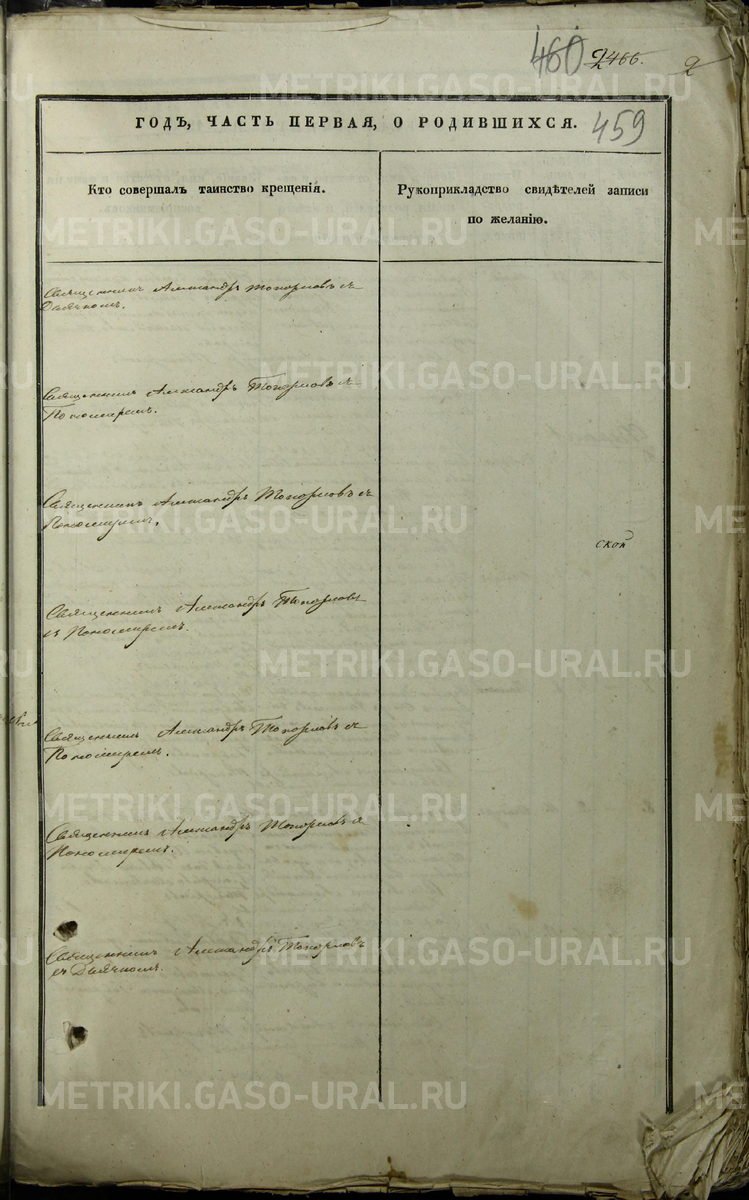 460 2466. 2
ГОДЪ, ЧАСТЬ ПЕРВАЯ, О РОДИВШИХСЯ. 459
Кто совершалъ таинство крещенія.
Рукоприкладство свидѣтелей записи
по желанію.
Священникъ Александръ Топорковъ съ
Дьячкомъ.
Священникъ Александръ Топорковъ съ
Пономаремъ.
Священникъ Александръ Топорковъ съ
Пономаремъ.
Священникъ Александръ Топорковъ
съ Пономаремъ.
Священникъ Александръ Топорковъ съ
Пономаремъ.
Священникъ Александръ Топорковъ съ
Пономаремъ.
Священникъ Александръ Топорковъ
съ Дьячкомъ.
METRIKI.GASO-URAL.RU